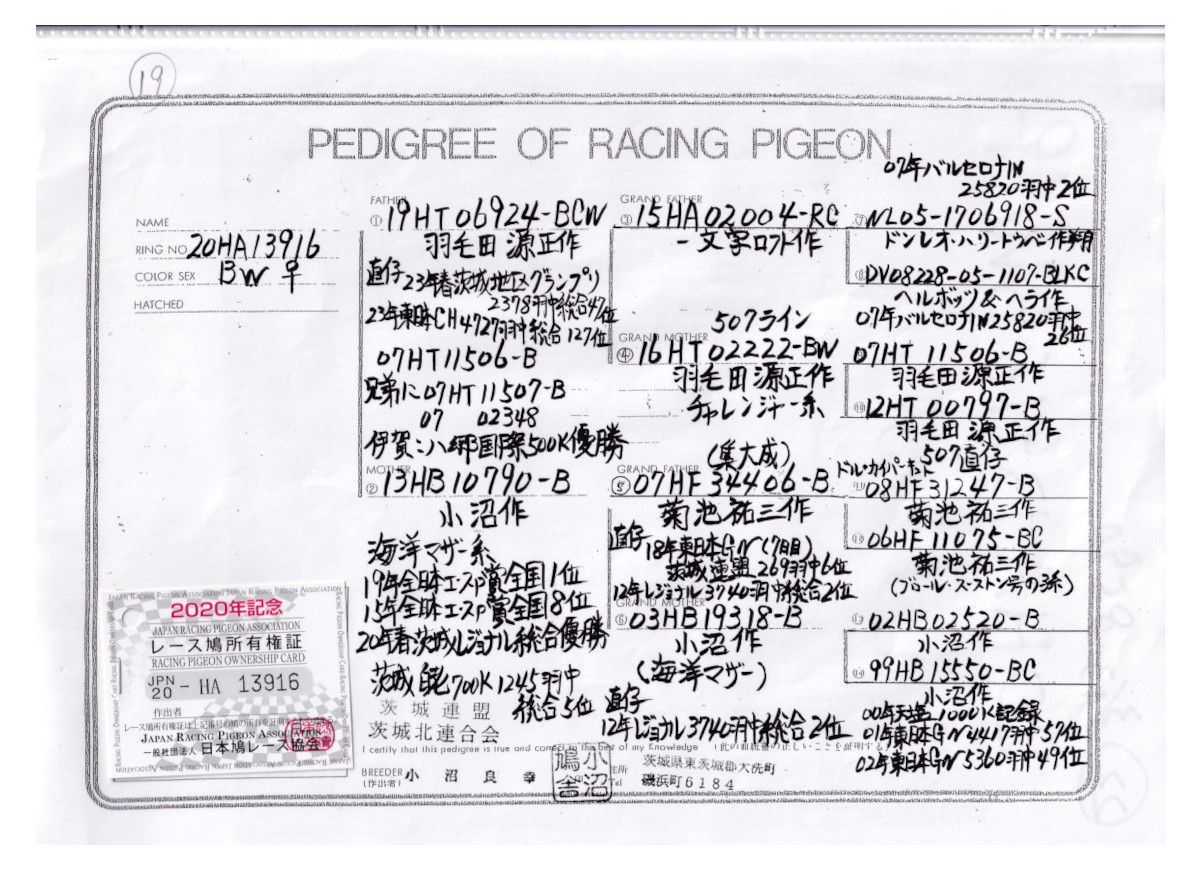 19
PEDIGREE OF RACING PIGEON
NAME
RING NO 20HA13916
COLOR SEX BW ♀
HATCHED
FATHER
① 19HT06924-BCW
羽毛田 源正作
直仔 23年春茨城地区グランプリ
2378羽中総合47位
23年東日本CH4727羽中総合127位
07HT11506-B
兄弟に07HT11507-B
07 02348
伊賀 国際500K優勝
MOTHER
② 13HB10790-B
小沼作
海洋マザー系
19年全日本エースP賞全国1位
15年全日本エースP賞全国8位
20年春茨城レジョナル総合優勝
茨城 700K 1245羽中
総合5位
茨城連盟
茨城北連合会
GRAND FATHER
③ 15HA02004-RC
一文字ロフト作
507ライン
GRAND MOTHER
④ 16HT02222-BW
羽毛田源正作
チャレンジャー系
(集大成)
GRAND FATHER
⑤ 07HF34406-B
菊池祐三作
直仔 18年東日本GN(7日目)
茨城連盟 269羽中6位
12年レジョナル3740羽中総合2位
GRAND MOTHER
⑥ 03HB19318-B
小沼作
(海洋マザー)
直仔
12年レジョナル3740羽中総合2位
07年バルセロナIN
25820羽中2位
⑦ NL05-1706918-S
ドンレオ・ハリートウベン作
⑧ DV08228-05-1107-BLKC
ヘルボッツ&ヘライ作
07年バルセロナIN25820羽中
26位
07HT 11506-B
羽毛田源正作
⑩ 12HT 00797-B
羽毛田 源正作
507直仔
⑪ 08HF31247-B
菊池祐三作
⑫ 06HF11075-BC
菊池祐三作
(ブロール・ス・ストン号の3系)
02HB02520-B
小沼作
⑭ 99HB15550-BC
小沼作
1000K記録
01年東日本GN4417羽中57位
02年東日本GN5360羽中49位
I certify that this pedigree is true and correct to the best of my Knowledge (此の血統書の正しいことを証明する
BREEDER 小沼良幸
(作出者)
小沼鳩舎
住所 茨城県東茨城郡大洗町
Tel 磯浜町6184
2020年記念
JAPAN RACING PIGEON ASSOCIATION
レース鳩所有権証
RACING PIGEON OWNERSHIP CARD
JPN
20 - HA 13916
作出者
JAPAN RACING PIGEON ASSOCIATION
一般社団法人 日本鳩レース協会